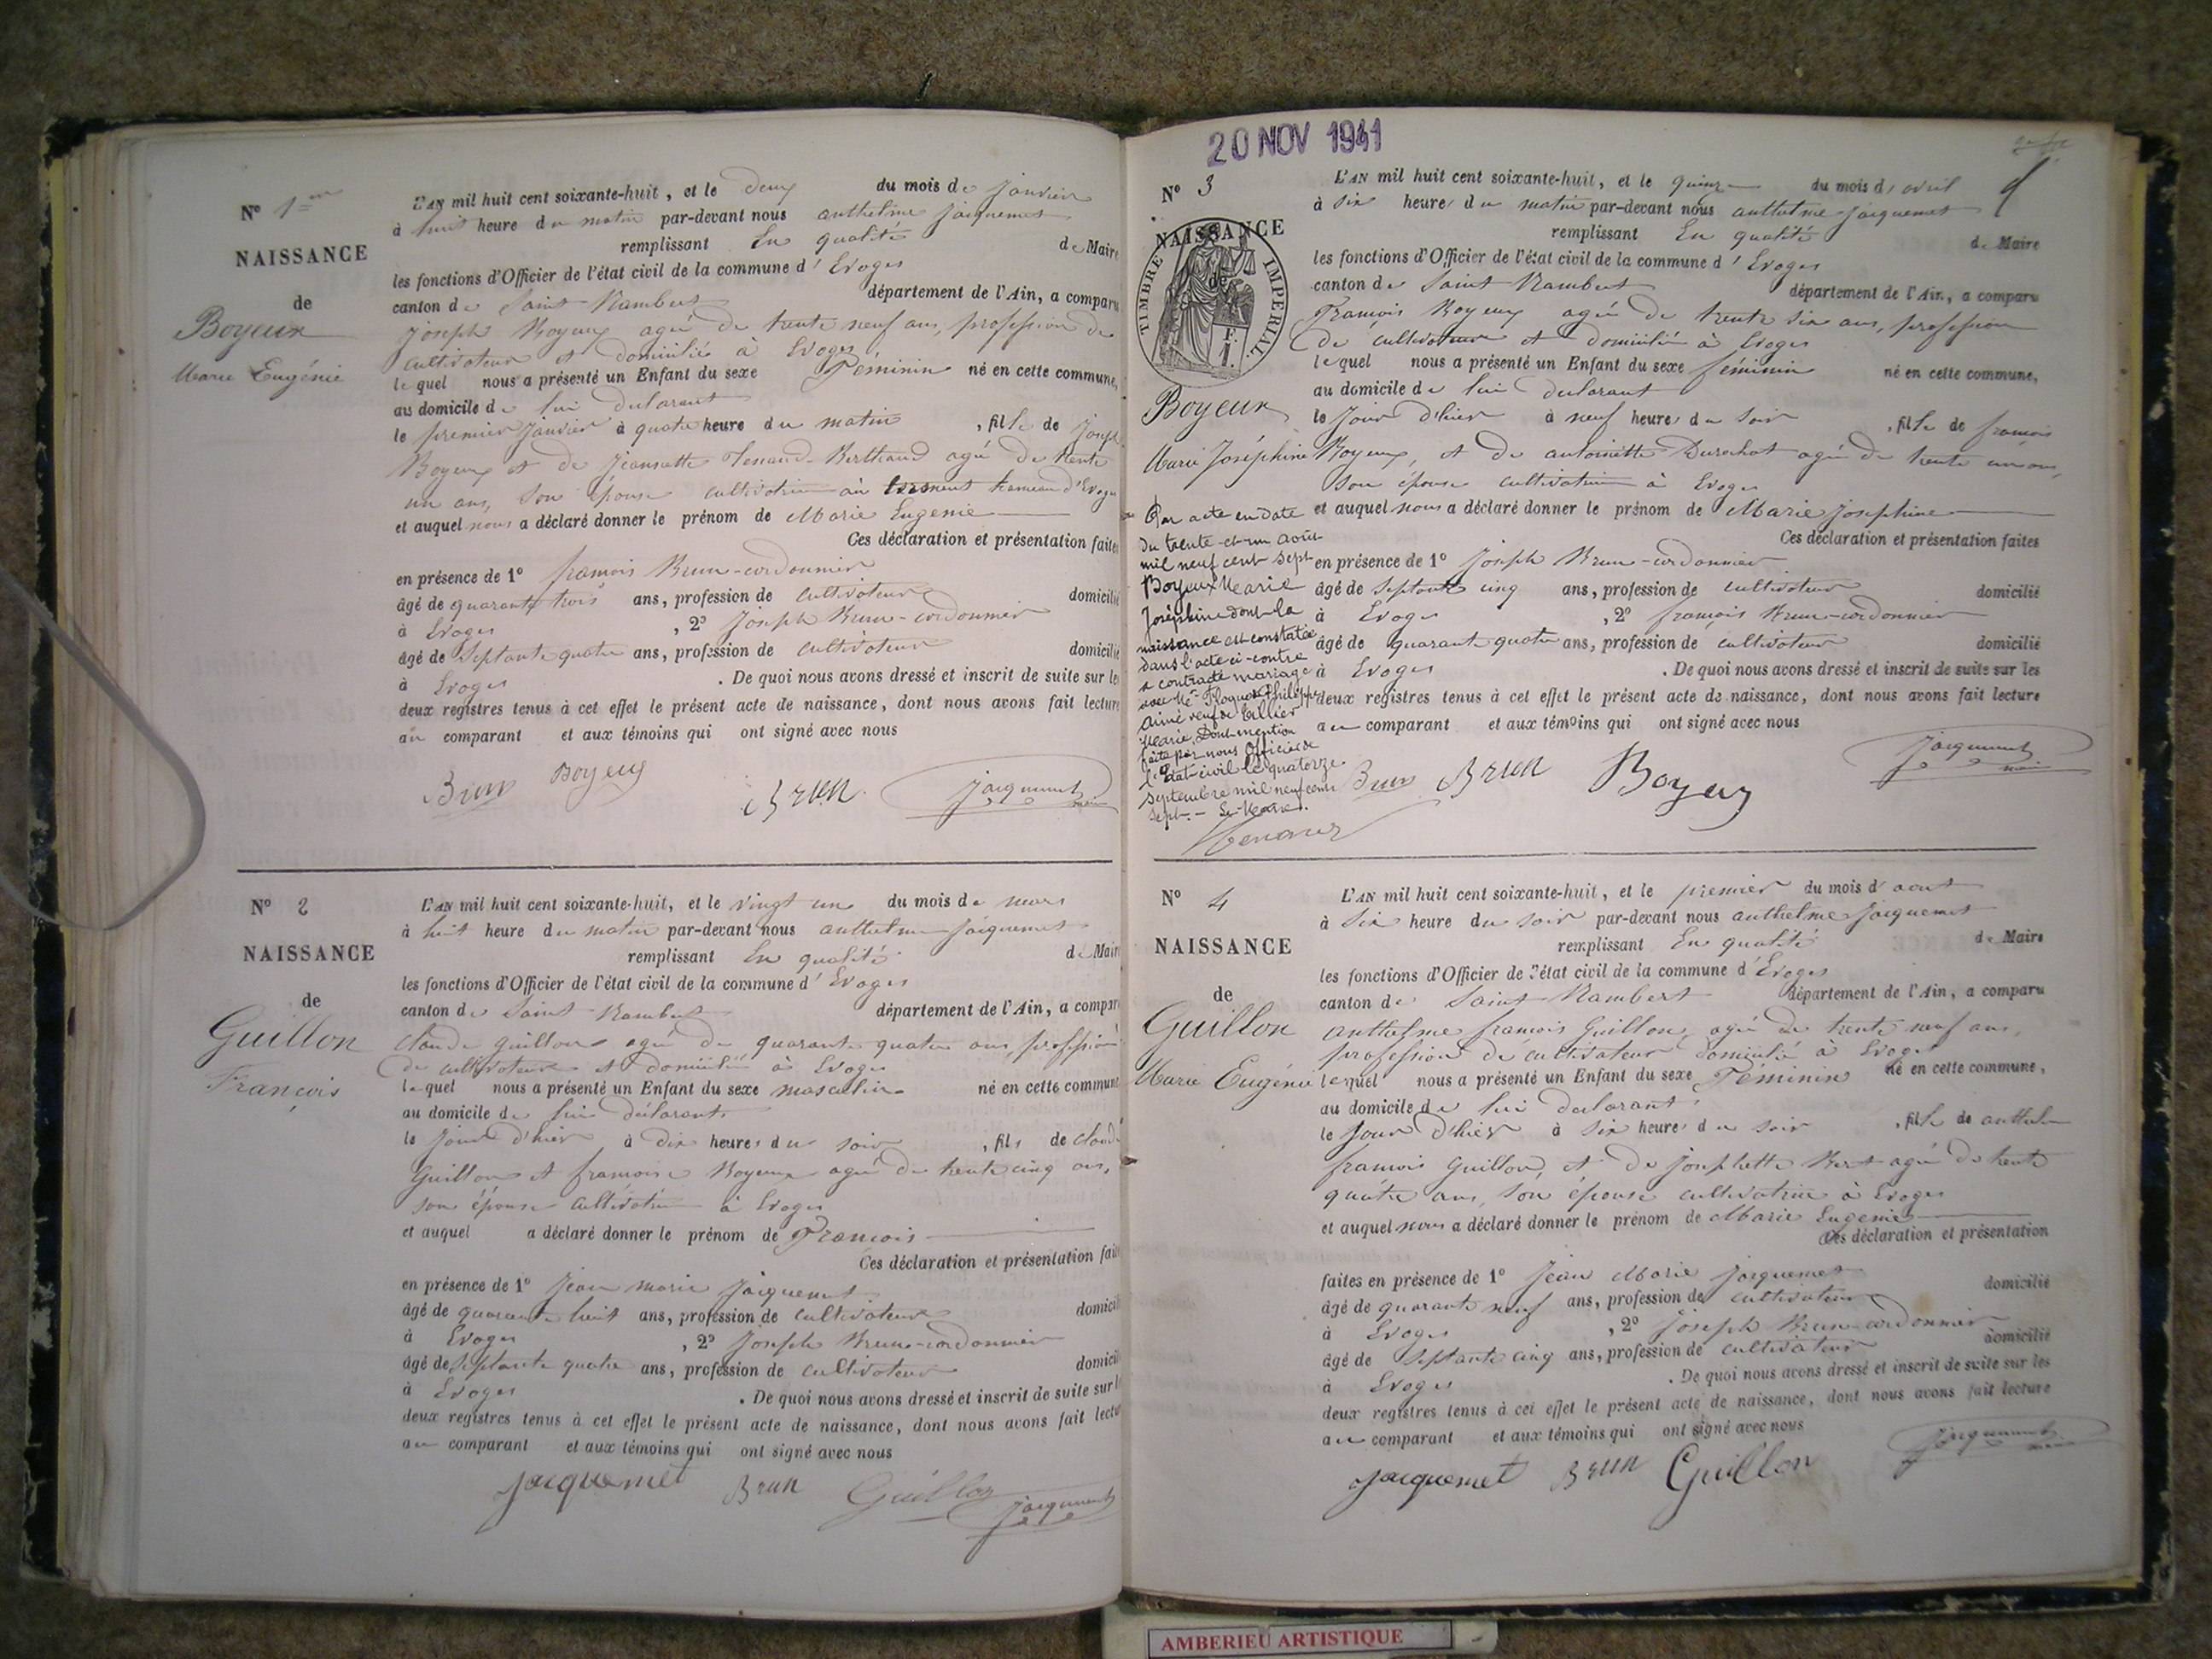 N° 1er
NAISSANCE
de
Boyeux
Marie Eugénie
L'AN mil huit cent soixante-huit, et le deux du mois de janvier
à huit heure du matin par-devant nous anthelme jacquemet
remplissant En qualité de Maire
les fonctions d'Officier de l'état civil de la commune d'Evoges
canton de Saint Rambert département de l'Ain, a comparu
joseph Boyeux agé de trente neuf ans, profession de
cultivateur et domicilié à Evoges
lequel nous a présenté un Enfant du sexe Féminin né en cette commune,
au domicile de lui déclarant
le premier janvier à quatre heure du matin , fille de joseph
Boyeux et de jeannette Tenand-Berthaud agé de trente
un ans, son épouse cultivatrice hameau d'Evoges
et auquel nous a déclaré donner le prénom de Marie Eugenie
Ces déclaration et présentation faites
en présence de 1° françois Brun-cordonnier
âgé de quarante trois ans, profession de cultivateur domicilié
à Evoges , 2° Joseph Brun-cordonnier
âgé de Septante quatre ans, profession de cultivateur domicilié
à Evoges . De quoi nous avons dressé et inscrit de suite sur les
deux registres tenus à cet effet le présent acte de naissance, dont nous avons fait lecture
au comparant et aux témoins qui ont signé avec nous
Brun Boyeux Brun jacquemet maire
N° 2
NAISSANCE
de
Guillon
François
L'AN mil huit cent soixante-huit, et le vingt un du mois de mars
à huit heure du matin par-devant nous anthelme jacquemet
remplissant En qualité de Maire
les fonctions d'Officier de l'état civil de la commune d'Evoges
canton de Saint Rambert département de l'Ain, a comparu
claude guillon agé de quarante quatre ans, profession
de cultivateur et domicilié à Evoges
lequel nous a présenté un Enfant du sexe masculin né en cette commune
au domicile de lui déclarant
le jour d'hier à dix heures du soir , fils de claude
Guillon et françoise Boyeux agé de trente cinq ans,
son épouse cultivatrice à Evoges
et auquel a déclaré donner le prénom de François
Ces déclaration et présentation faites
en présence de 1° Jean marie jacquemet
âgé de quarante huit ans, profession de cultivateur domicilié
à Evoges , 2° Joseph Brun-cordonnier
âgé de Septante quatre ans, profession de cultivateur domicilié
à Evoges . De quoi nous avons dressé et inscrit de suite sur les
deux registres tenus à cet effet le présent acte de naissance, dont nous avons fait lecture
au comparant et aux témoins qui ont signé avec nous
jacquemet Brun Guillon jacquemet
20 NOV 1941
N° 3
NAISSANCE
de
TIMBRE IMPERIAL
1 F.
Boyeux
Marie Joséphine
Par acte en date
du trente-et-un août
mil neuf cent sept
Boyeux Marie
Joséphine dont la
naissance est constatée
dans l'acte ci-contre
a contracté mariage
avec Mr Floquet Philippe
Aimé veuf de Tillier
Marie. Dont mention
faite par nous Officier de
l'Etat-civil le quatorze
septembre mil neuf cent
sept. - Le Maire.
L'AN mil huit cent soixante-huit, et le quinze du mois d'avril
à six heures du matin par-devant nous anthelme jacquemet
remplissant En qualité de Maire
les fonctions d'Officier de l'état civil de la commune d'Evoges
canton de Saint Rambert département de l'Ain, a comparu
François Boyeux agé de trente six ans, profession
de cultivateur et domicilié à Evoges
lequel nous a présenté un Enfant du sexe féminin né en cette commune,
au domicile de lui déclarant
le jour d'hier à neuf heures du soir , fille de françois
Boyeux, et de antoinette Durochat agé de trente un ans,
son épouse cultivatrice à Evoges
et auquel nous a déclaré donner le prénom de Marie Josephine
Ces déclaration et présentation faites
en présence de 1° Joseph Brun-cordonnier
âgé de Septante cinq ans, profession de cultivateur domicilié
à Evoges , 2° françois Brun-cordonnier
âgé de quarante quatre ans, profession de cultivateur domicilié
à Evoges . De quoi nous avons dressé et inscrit de suite sur les
deux registres tenus à cet effet le présent acte de naissance, dont nous avons fait lecture
au comparant et aux témoins qui ont signé avec nous
Brun Brun Boyeux jacquemet maire
N° 4
NAISSANCE
de
Guillon
Marie Eugénie
L'AN mil huit cent soixante-huit, et le premier du mois d'aout
à six heure du soir par-devant nous anthelme jacquemet
remplissant En qualité de Maire
les fonctions d'Officier de l'état civil de la commune d'Evoges
canton de Saint Rambert département de l'Ain, a comparu
anthelme françois Guillon, agé de trente neuf ans,
profession de cultivateur domicilié à Evoges
lequel nous a présenté un Enfant du sexe Féminin né en cette commune,
au domicile de lui déclarant
le jour d'hier à six heures du soir , fille de anthelme
françois Guillon, et de josephette Bert agé de trente
quatre ans, son épouse cultivatrice à Evoges
et auquel nous a déclaré donner le prénom de Marie Eugenie
Ces déclaration et présentation
faites en présence de 1° Jean Marie jacquemet domicilié
âgé de quarante neuf ans, profession de cultivateur
à Evoges , 2° joseph Brun-cordonnier
âgé de Septante cinq ans, profession de cultivateur domicilié
à Evoges . De quoi nous avons dressé et inscrit de suite sur les
deux registres tenus à cet effet le présent acte de naissance, dont nous avons fait lecture
au comparant et aux témoins qui ont signé avec nous
jacquemet Brun Guillon jacquemet maire
AMBERIEU ARTISTIQUE